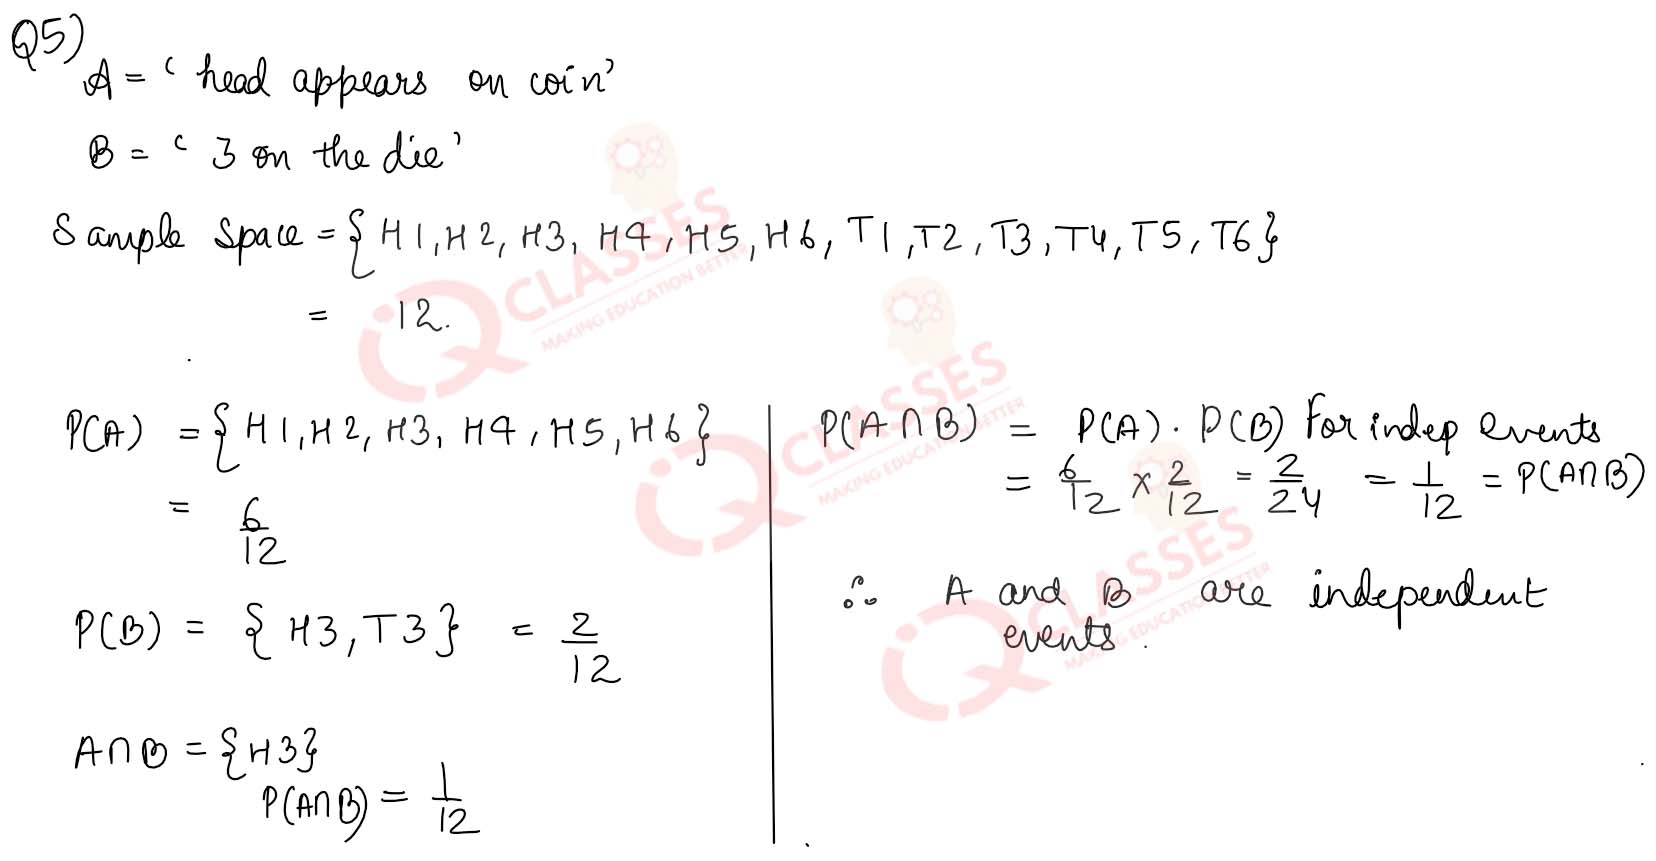 Q5)
A = ‘ head appears on coin’
B = ‘ 3 on the die’
Sample Space = { H1, H2, H3, H4, H5, H6, T1, T2, T3, T4, T5, T6}
= 12.
P(A) = { H1, H2, H3, H4, H5, H6}
= 6/12
P(B) = { H3, T3} = 2/12
A∩B = {H3}
P(A∩B) = 1/12
P(A∩B) = P(A). P(B) For indep events
= 6/12 × 2/12 = 2/24 = 1/12 = P(A∩B)
∴ A and B are independent
events.
iQ CLASSES
MAKING EDUCATION BETTER
iQ CLASSES
MAKING EDUCATION BETTER
iQ CLASSES
MAKING EDUCATION BETTER